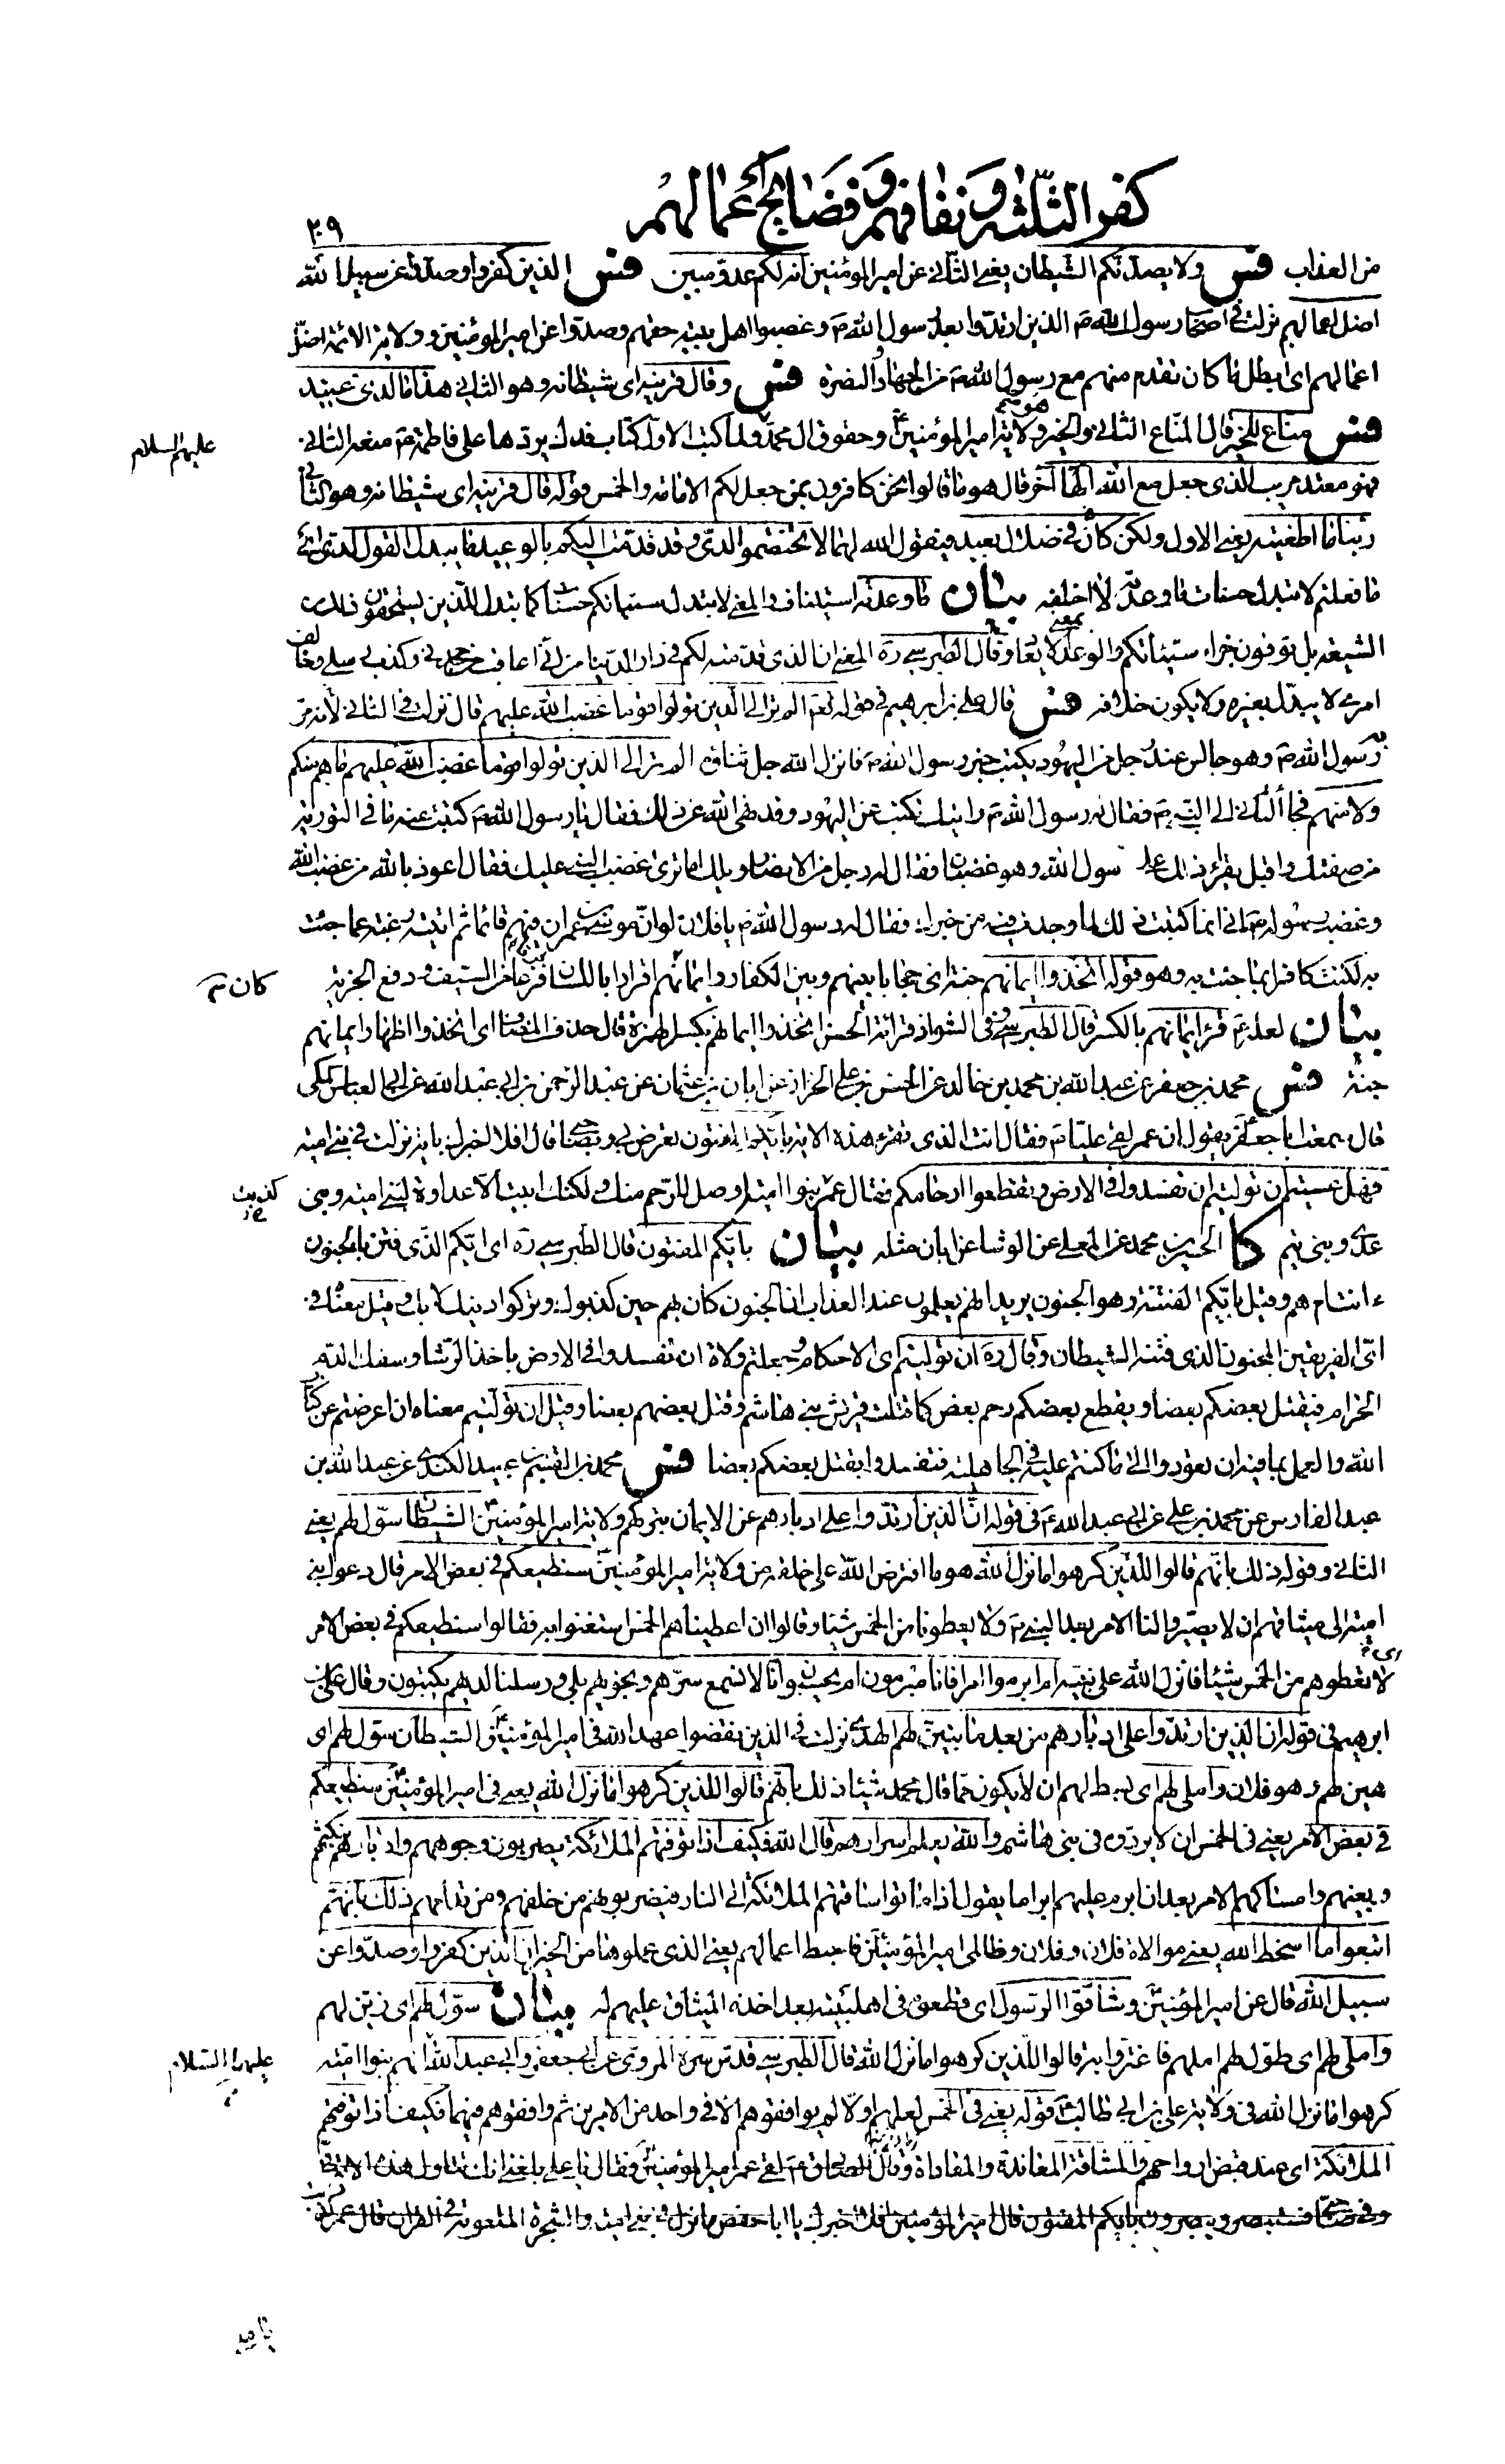 كفر الثلثة و نفاقهم و فضايح أعمالهم
٢٠٩
من العذاب فس ولا يصدنكم الشيطان يعنى الثاني عن امير المؤمنين انه لكم عدو مبين فس الذين كفروا وصدوا عن سبيل الله
اضل اعمالهم نزلت في اصحاب رسول الله ص الذين ارتدوا بعد رسول الله ص وغصبوا اهل بيته حقهم وصدوا عن امير المؤمنين وولاية الائمة اضل
اعمالهم اى ابطل ما كان تقدم منهم مع رسول الله ص من الجهاد والنصرة فس وقال قرينه اى شيطانه وهو الثاني هذا ما لدى عتيد
فس مناع للخير قال المناع الثاني والخير ولاية امير المؤمنين وحقوق ال محمد ولما كتب الاول كتاب فدك يردها على فاطمة ع منعه الثاني
عليهم السلام
فهو معتد مريب الذى جعل مع الله الها آخر قال هو ما قالوا نحن كافرون بمن جعل لكم الامامة والخمس قوله قال قرينه اى شيطانه وهو الثاني
ربنا ما اطغيته يعنى الاول ولكن كان في ضلال بعيد فيقول الله لهما لا تختصموا لدى وقد قدمت اليكم بالوعيد ما يبدل القول لدى اى
ما فعلتم لا تبدل حسنات ما وعدته لا اخلفه بيان ما وعدته استيناف والمعنى لا تبدل سيئاتكم حسنات كما تبدل للذين يستحقون ذلك من
الشيعة بل توفون جزاء سيئاتكم والوعد بمعنى الايعاد وقال الطبرسي ره المعنى ان الذى قدمته لكم في دار الدنيا من اني اعاقب من جحدني وكذب رسلي وخالف
امرى لا يبدل بغيره ولا يكون خلافه فس قال على بن ابرهيم في قوله تعم الم تر الى الذين تولوا قوما غضب الله عليهم قال نزلت في الثاني لانه مر
به رسول الله ص وهو جالس عند رجل من اليهود يكتب خبر رسول الله ص فانزل الله جل ثناؤه الم تر الى الذين تولوا قوما غضب الله عليهم ما هم منكم
ولا منهم فجاء الثاني الى النبي ص فقال له رسول الله ص رايتك تكتب عن اليهود وقد نهى الله عن ذلك فقال يا رسول الله ص كتبت عنه ما في التورية
من صفتك واقبل يقرء ذلك على رسول الله وهو غضبان فقال له رجل من الانصار ويلك اما ترى غضب النبي عليك فقال اعوذ بالله من غضب الله
وغضب رسوله ص اني انما كتبت ذلك لما وجدت فيه من خبرك فقال له رسول الله ص يا فلان لو ان موسى بن عمران فيهم قائما ثم اتيته رغبة عما جئت
به لكنت كافرا بما جئت به وهو قوله اتخذوا ايمانهم جنة اى حجابا بينهم وبين الكفار وايمانهم اقرار باللسان فرقا من السيف ورفع الجزية
كان سم
بيان لعله ع قرء ايمانهم بالكسر قال الطبرسي وفي الشواذ قراءة الحسن اتخذوا ايمانهم بكسر الهمزة قال حذف المضاف اى اتخذوا اظهار ايمانهم
جنة فس محمد بن جعفر عن عبد الله بن محمد بن خالد عن الحسن بن على الخزاز عن ابان بن عثمان عن عبد الرحمن بن ابي عبد الله عن ابي العباس المكى
قال سمعت ابا جعفر يقول ان عمر لقى عليا ع فقال انت الذى تقرء هذه الاية بايكم المفتون تعرض بي وبصاحبي قال افلا اخبرك باية نزلت في بني امية
فهل عسيتم ان توليتم ان تفسدوا في الارض وتقطعوا ارحامكم فقال عمر بنوا امية اوصل للرحم منك ولكنك ابيت الا عداوة لبني امية وبني
كذبت
عدى وبني تيم كا الحسين بن محمد عن المعلى عن الوشا عن ابان مثله بيان بايكم المفتون قال الطبرسي ره اى ايكم الذى فتن بالجنون
ءانت ام هم وقيل بايكم الفتنة وهو الجنون يريد انهم يعلمون عند العذاب ان الجنون كان بهم حين كذبوك وتركوا دينك لا بك وقيل معناه في
اى الفريقين المجنون الذى فتنه الشيطان وقال ره ان توليتم اى الاحكام وجعلتم ولاة ان تفسدوا في الارض باخذ الرشا وسفك الدم
الحرام فيقتل بعضكم بعضا ويقطع بعضكم رحم بعض كما قتلت قريش بني هاشم وقتل بعضهم بعضا وقيل ان توليتم معناه ان اعرضتم عن كتاب
الله والعمل بما فيه ان تعودوا الى ما كنتم عليه في الجاهلية فتفسدوا بقتل بعضكم بعضا فس محمد بن القسم بن عبيد الكندى عن عبد الله بن
عبد الفارس عن محمد بن على عن ابي عبد الله ع في قوله ان الذين ارتدوا على ادبارهم عن الايمان بتركهم ولاية امير المؤمنين الشيطان سول لهم يعنى
الثاني وقوله ذلك بانهم قالوا للذين كرهوا ما نزل الله هو ما افترض الله على خلقه من ولاية امير المؤمنين سنطيعكم في بعض الامر قال دعوا بني
امية الى ميثاقهم ان لا يصيروا لنا الامر بعد النبي ص ولا يعطونا من الخمس شيئا وقالوا ان اعطيناهم الخمس استغنوا به فقالوا سنطيعكم في بعض الامر
اى
لا تعطوهم من الخمس شيئا فانزل الله على نبيه ام ابرموا امرا فانا مبرمون ام يحسبون انا لا نسمع سرهم ونجويهم بلى ورسلنا لديهم يكتبون وقال على بن
ابرهيم في قوله ان الذين ارتدوا على ادبارهم من بعد ما تبين لهم الهدى نزلت في الذين نقضوا عهد الله في امير المؤمنين الشيطان سول لهم اى
هين لهم وهو فلان واملى لهم اى بسط لهم ان لا يكون مما قال محمد شيئا ذلك بانهم قالوا للذين كرهوا ما نزل الله يعنى في امير المؤمنين سنطيعكم
في بعض الامر يعنى في الخمس ان لا يردوه في بني هاشم والله يعلم اسرارهم قال الله فكيف اذا توفتهم الملائكة يضربون وجوههم وادبارهم بنكثهم
وبغيهم وامساكهم الامر بعد ان ابرم عليهم ابراما يقول اذا ماتوا ساقتهم الملائكة الى النار فيضربونهم من خلفهم ومن قدامهم ذلك بانهم
اتبعوا ما اسخط الله يعنى موالاة فلان وفلان وظالمي امير المؤمنين فاحبط اعمالهم يعنى الذى عملوها من الخير ان الذين كفروا وصدوا عن
سبيل الله قال عن امير المؤمنين وشاقوا الرسول اى قطعوه في اهل بيته بعد اخذه الميثاق عليهم له بيان سول لهم اى زين لهم
واملى لهم اى طول لهم املهم فاغتروا به قالوا للذين كرهوا ما نزل الله قال الطبرسي قدس سره المروى عن ابي جعفر وابي عبد الله انهم بنوا امية
عليهما السلام
كرهوا ما نزل الله في ولاية على بن ابي طالب قوله يعنى في الخمس لعلهم اولا لم يوافقوهم الا في واحد من الامرين ثم وافقوهم فيهما فكيف اذا توفتهم
الملائكة اى عند قبض ارواحهم والمشاقة المعاندة والمعاداة وقال الصادق ع لقى عمر امير المؤمنين فقال يا على بلغنى انك تتاول هذه الاية في
وفي صاحبي فستبصر ويبصرون بايكم المفتون قال امير المؤمنين افلا اخبرك يا ابا حفص ما نزل في بني امية والشجرة الملعونة في القران قال عمر كذبت
يا على